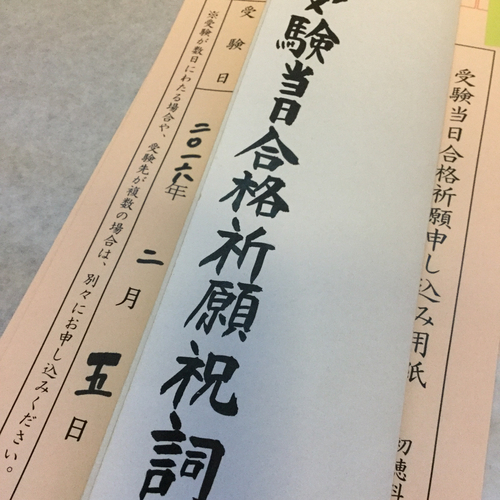 受験当日合格祈願申し込み用紙
初穂料
受験当日合格祈願祝詞
受験日
二〇一六年 二月 五日
※受験が数日にわたる場合や、受験先が複数の場合は、別々にお申し込みください。